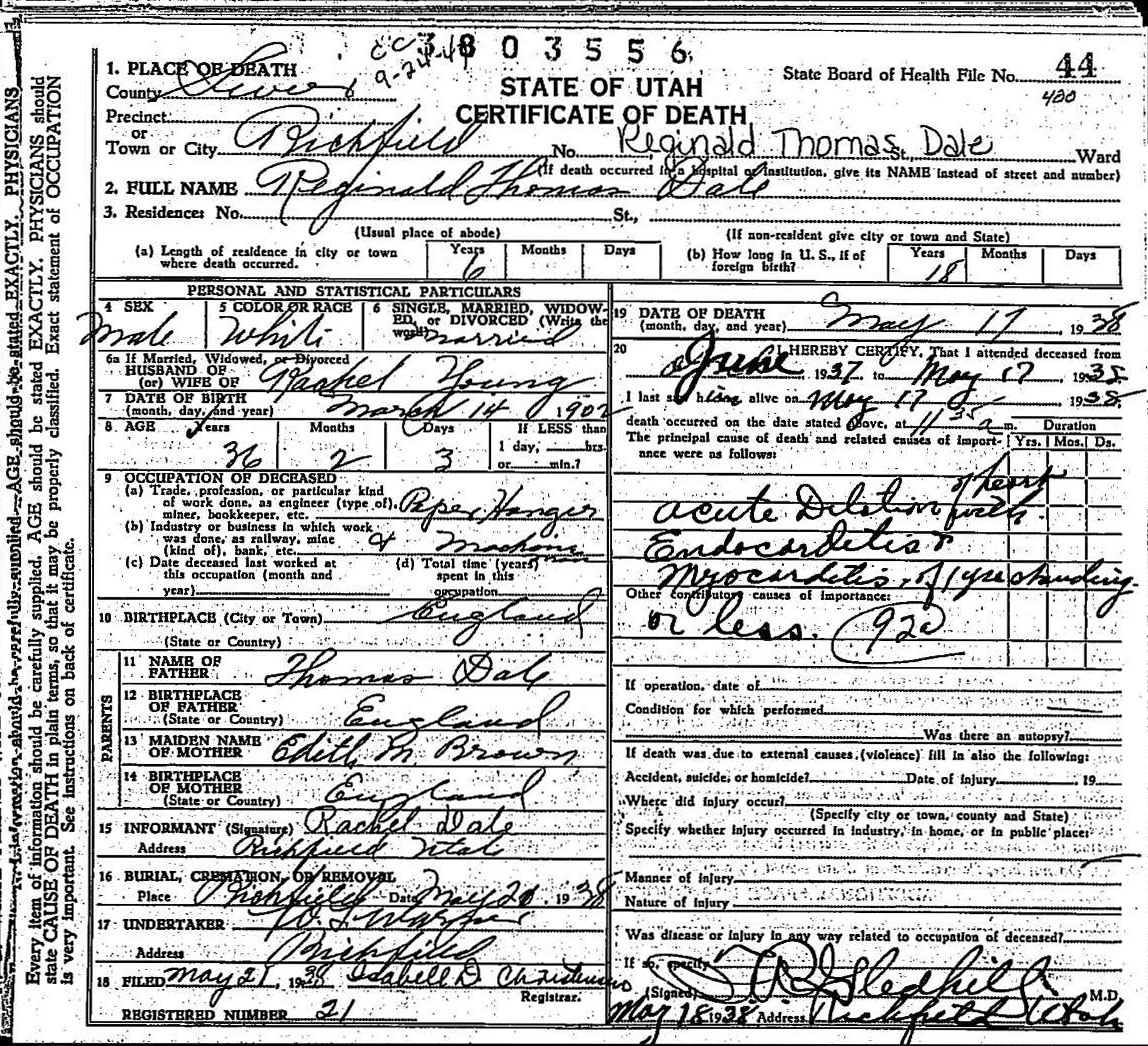 3803556
9-24-41
1. PLACE OF DEATH
County Sevier
STATE OF UTAH
CERTIFICATE OF DEATH
State Board of Health File No. 44
420
Precinct
or
Town or City Richfield No. Reginald Thomas Dale St., Ward
(If death occurred in a hospital or institution, give its NAME instead of street and number)
2. FULL NAME Reginald Thomas Dale
3. Residence: No. St.,
(Usual place of abode) (If non-resident give city or town and State)
(a) Length of residence in city or town where death occurred. Years 6 Months Days
(b) How long in U. S., if of foreign birth? Years 18 Months Days
PERSONAL AND STATISTICAL PARTICULARS
4 SEX Male
5 COLOR OR RACE White
6 SINGLE, MARRIED, WIDOWED, or DIVORCED (Write the word) Married
6a If Married, Widowed, or Divorced
HUSBAND OF
(or) WIFE OF Rachel Young
7 DATE OF BIRTH
(month, day, and year) March 14 1902
8 AGE Years 36 Months 2 Days 3 If LESS than 1 day, hrs. or min.?
9 OCCUPATION OF DECEASED
(a) Trade, profession, or particular kind of work done, as engineer (type of), miner, bookkeeper, etc. Paper Hanger
(b) Industry or business in which work was done, as railway, mine (kind of), bank, etc. &
(c) Date deceased last worked at this occupation (month and year)
(d) Total time (years) spent in this occupation
10 BIRTHPLACE (City or Town) England
(State or Country)
PARENTS
11 NAME OF FATHER Thomas Dale
12 BIRTHPLACE OF FATHER
(State or Country) England
13 MAIDEN NAME OF MOTHER Edith M Brown
14 BIRTHPLACE OF MOTHER
(State or Country) England
15 INFORMANT (Signature) Rachel Dale
Address Richfield Utah
16 BURIAL, CREMATION, OR REMOVAL
Place Richfield Date May 20, 1938
17 UNDERTAKER
Address Richfield
18 FILED May 21, 1938 Isabell D Christensen
Registrar.
REGISTERED NUMBER 21
19 DATE OF DEATH
(month, day, and year) May 17 1938
20 I HEREBY CERTIFY, That I attended deceased from
June 1937 to May 17 1938
I last saw him alive on May 17 1938
death occurred on the date stated above, at 11 35 a m.
The principal cause of death and related causes of importance were as follows: Duration Yrs. Mos. Ds.
of heart
acute Dilation with
Endocarditis &
Myocarditis, of 1 yr standing
Other contributory causes of importance:
or less. 920
If operation, date of
Condition for which performed
Was there an autopsy?
If death was due to external causes (violence) fill in also the following:
Accident, suicide, or homicide? Date of injury 19
Where did injury occur?
(Specify city or town, county and State)
Specify whether injury occurred in industry, in home, or in public place:
Manner of injury
Nature of injury
Was disease or injury in any way related to occupation of deceased?
If so, specify
(Signed) Gledhill M.D.
May 18 1938 Address Richfield Utah
Every item of information should be carefully supplied. AGE should be stated EXACTLY. PHYSICIANS should
state CAUSE OF DEATH in plain terms, so that it may be properly classified. Exact statement of OCCUPATION
is very important. See instructions on back of certificate.